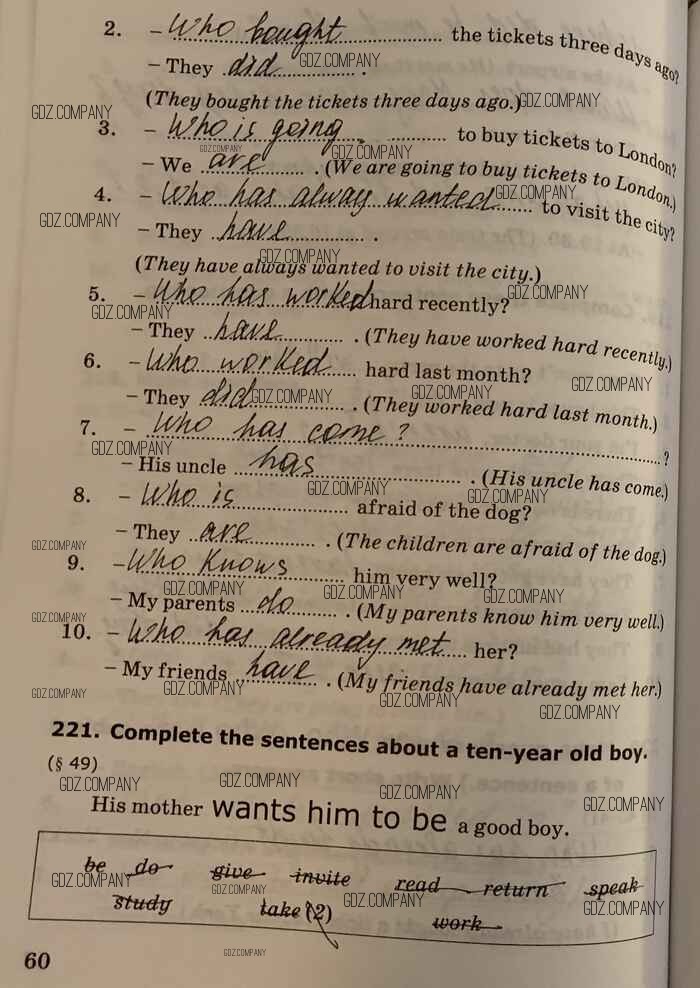 2. – Who bought the tickets three days ago?
– They did.
(They bought the tickets three days ago.)
3. – Who is going to buy tickets to London?
– We are. (We are going to buy tickets to London.)
4. – Who has always wanted to visit the city?
– They have.
(They have always wanted to visit the city.)
5. – Who has worked hard recently?
– They have. (They have worked hard recently.)
6. – Who worked hard last month?
– They did. (They worked hard last month.)
7. – Who has come? ?
– His uncle has. (His uncle has come.)
8. – Who is afraid of the dog?
– They are. (The children are afraid of the dog.)
9. – Who knows him very well?
– My parents do. (My parents know him very well.)
10. – Who has already met her?
– My friends have. (My friends have already met her.)
221. Complete the sentences about a ten-year old boy.
(§ 49)
His mother wants him to be a good boy.
be do give invite read return speak
study take (2) work
60
GDZ.COMPANY